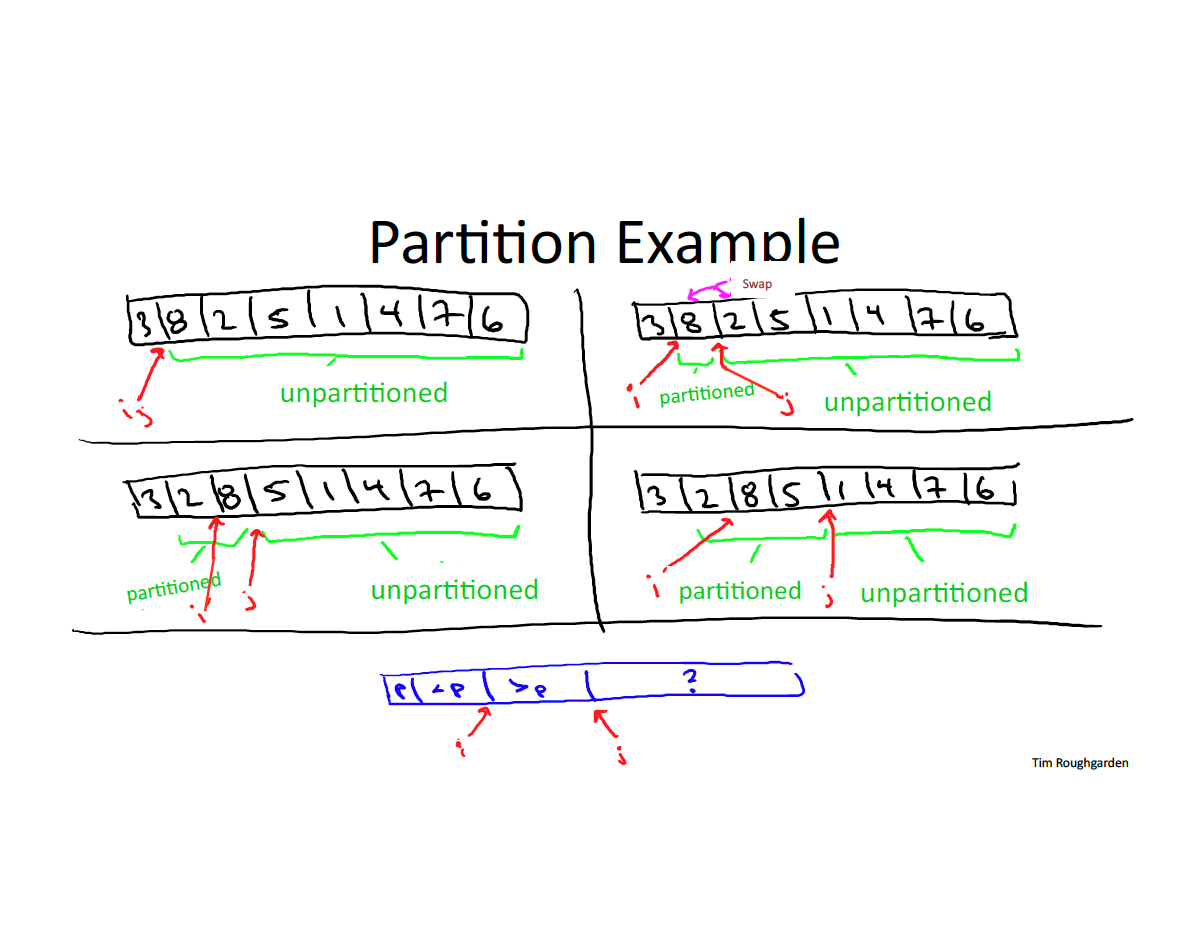 Partition Example
3 8 2 5 1 4 7 6
i j
unpartitioned
Swap
3 8 2 5 1 4 7 6
i
partitioned
j
unpartitioned
3 2 8 5 1 4 7 6
partitioned
i
j
unpartitioned
3 2 8 5 1 4 7 6
i
partitioned
j
unpartitioned
P <P >P ?
i
j
Tim Roughgarden